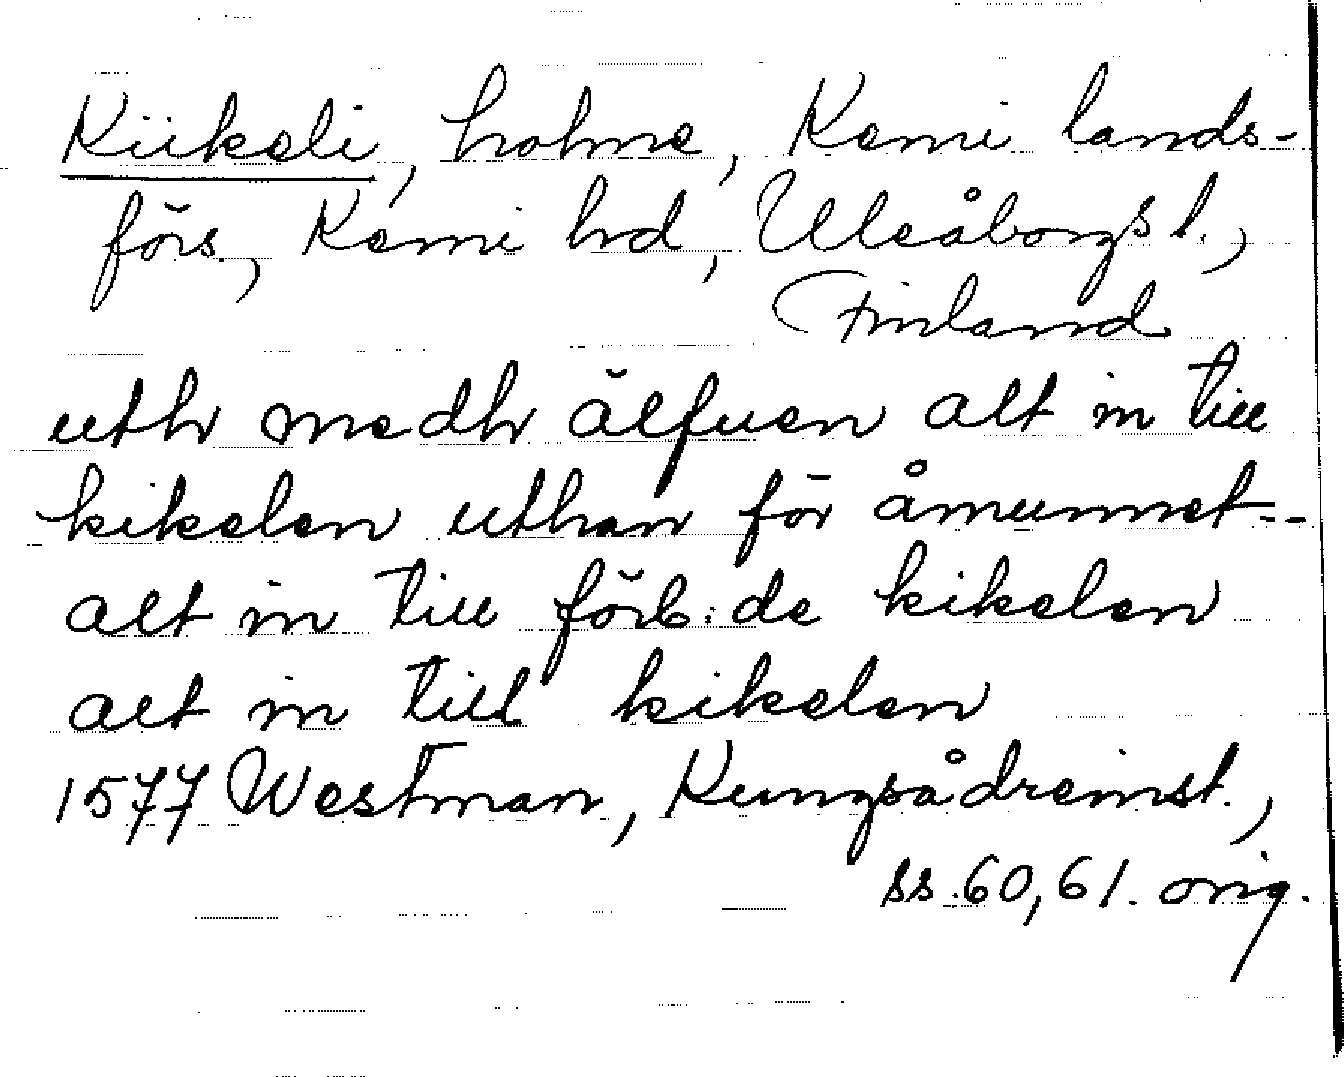 Kiikeli, holme, Kemi lands-
förs., Kemi hd, Uleåborgs l.,
Finland
uthr medh älfuen alt in till
kikelen uthan för åmunnet--
alt in till förb:de kikelen
alt in till kikelen
1577 Westman, Kungsådreinst.,
ss. 60, 61. orig.